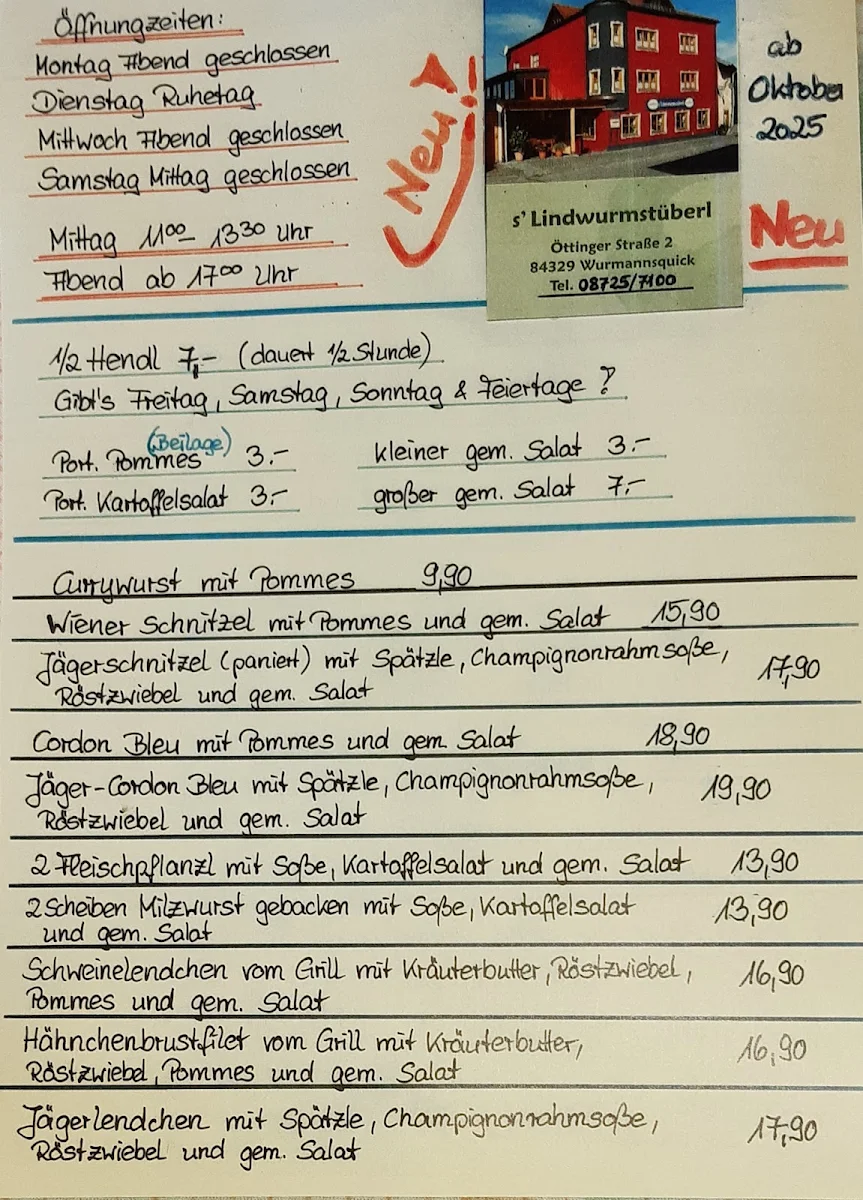 Öffnungzeiten:
Montag Abend geschlossen
Dienstag Ruhetag
Mittwoch Abend geschlossen
Samstag Mittag geschlossen
Mittag 11⁰⁰ - 13³⁰ Uhr
Abend ab 17⁰⁰ Uhr
Neu!
s' Lindwurmstüberl
Öttinger Straße 2
84329 Wurmannsquick
Tel. 08725/7100
ab
Oktober
2025
Neu
1/2 Hendl 7,- (dauert 1/2 Stunde)
Gibt's Freitag, Samstag, Sonntag & Feiertage !
(Beilage)
Port. Pommes 3.-
kleiner gem. Salat 3.-
Port. Kartoffelsalat 3.-
großer gem. Salat 7.-
Currywurst mit Pommes 9,90
Wiener Schnitzel mit Pommes und gem. Salat 15,90
Jägerschnitzel (paniert) mit Spätzle, Champignonrahmsoße, 17,90
Röstzwiebel und gem. Salat
Cordon Bleu mit Pommes und gem. Salat 18,90
Jäger-Cordon Bleu mit Spätzle, Champignonrahmsoße, 19,90
Röstzwiebel und gem. Salat
2 Fleischpflanzl mit Soße, Kartoffelsalat und gem. Salat 13,90
2 Scheiben Milzwurst gebacken mit Soße, Kartoffelsalat 13,90
und gem. Salat
Schweinelendchen vom Grill mit Kräuterbutter, Röstzwiebel, 16,90
Pommes und gem. Salat
Hähnchenbrustfilet vom Grill mit Kräuterbutter, 16,90
Röstzwiebel, Pommes und gem. Salat
Jägerlendchen mit Spätzle, Champignonrahmsoße, 17,90
Röstzwiebel und gem. Salat